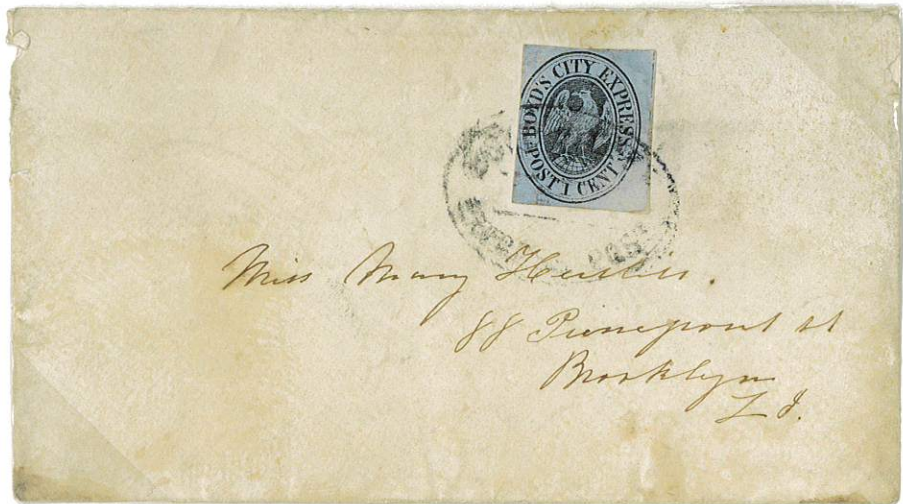 BOYD'S CITY EXPRESS
POST 1 CENT
POST
Miss Mary
88 Pierrepont st
Brooklyn
L I.